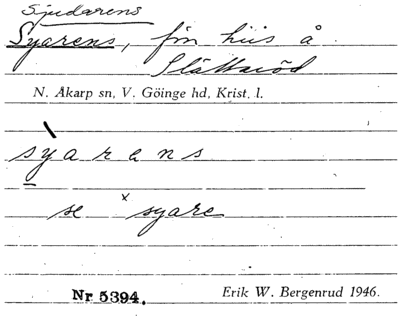 Sjudarens
Syarens, fm hus å
Slättaröd
N. Åkarp sn, V. Göinge hd, Krist. l.
syarens
se × syare
Nr 5394. Erik W. Bergenrud 1946.